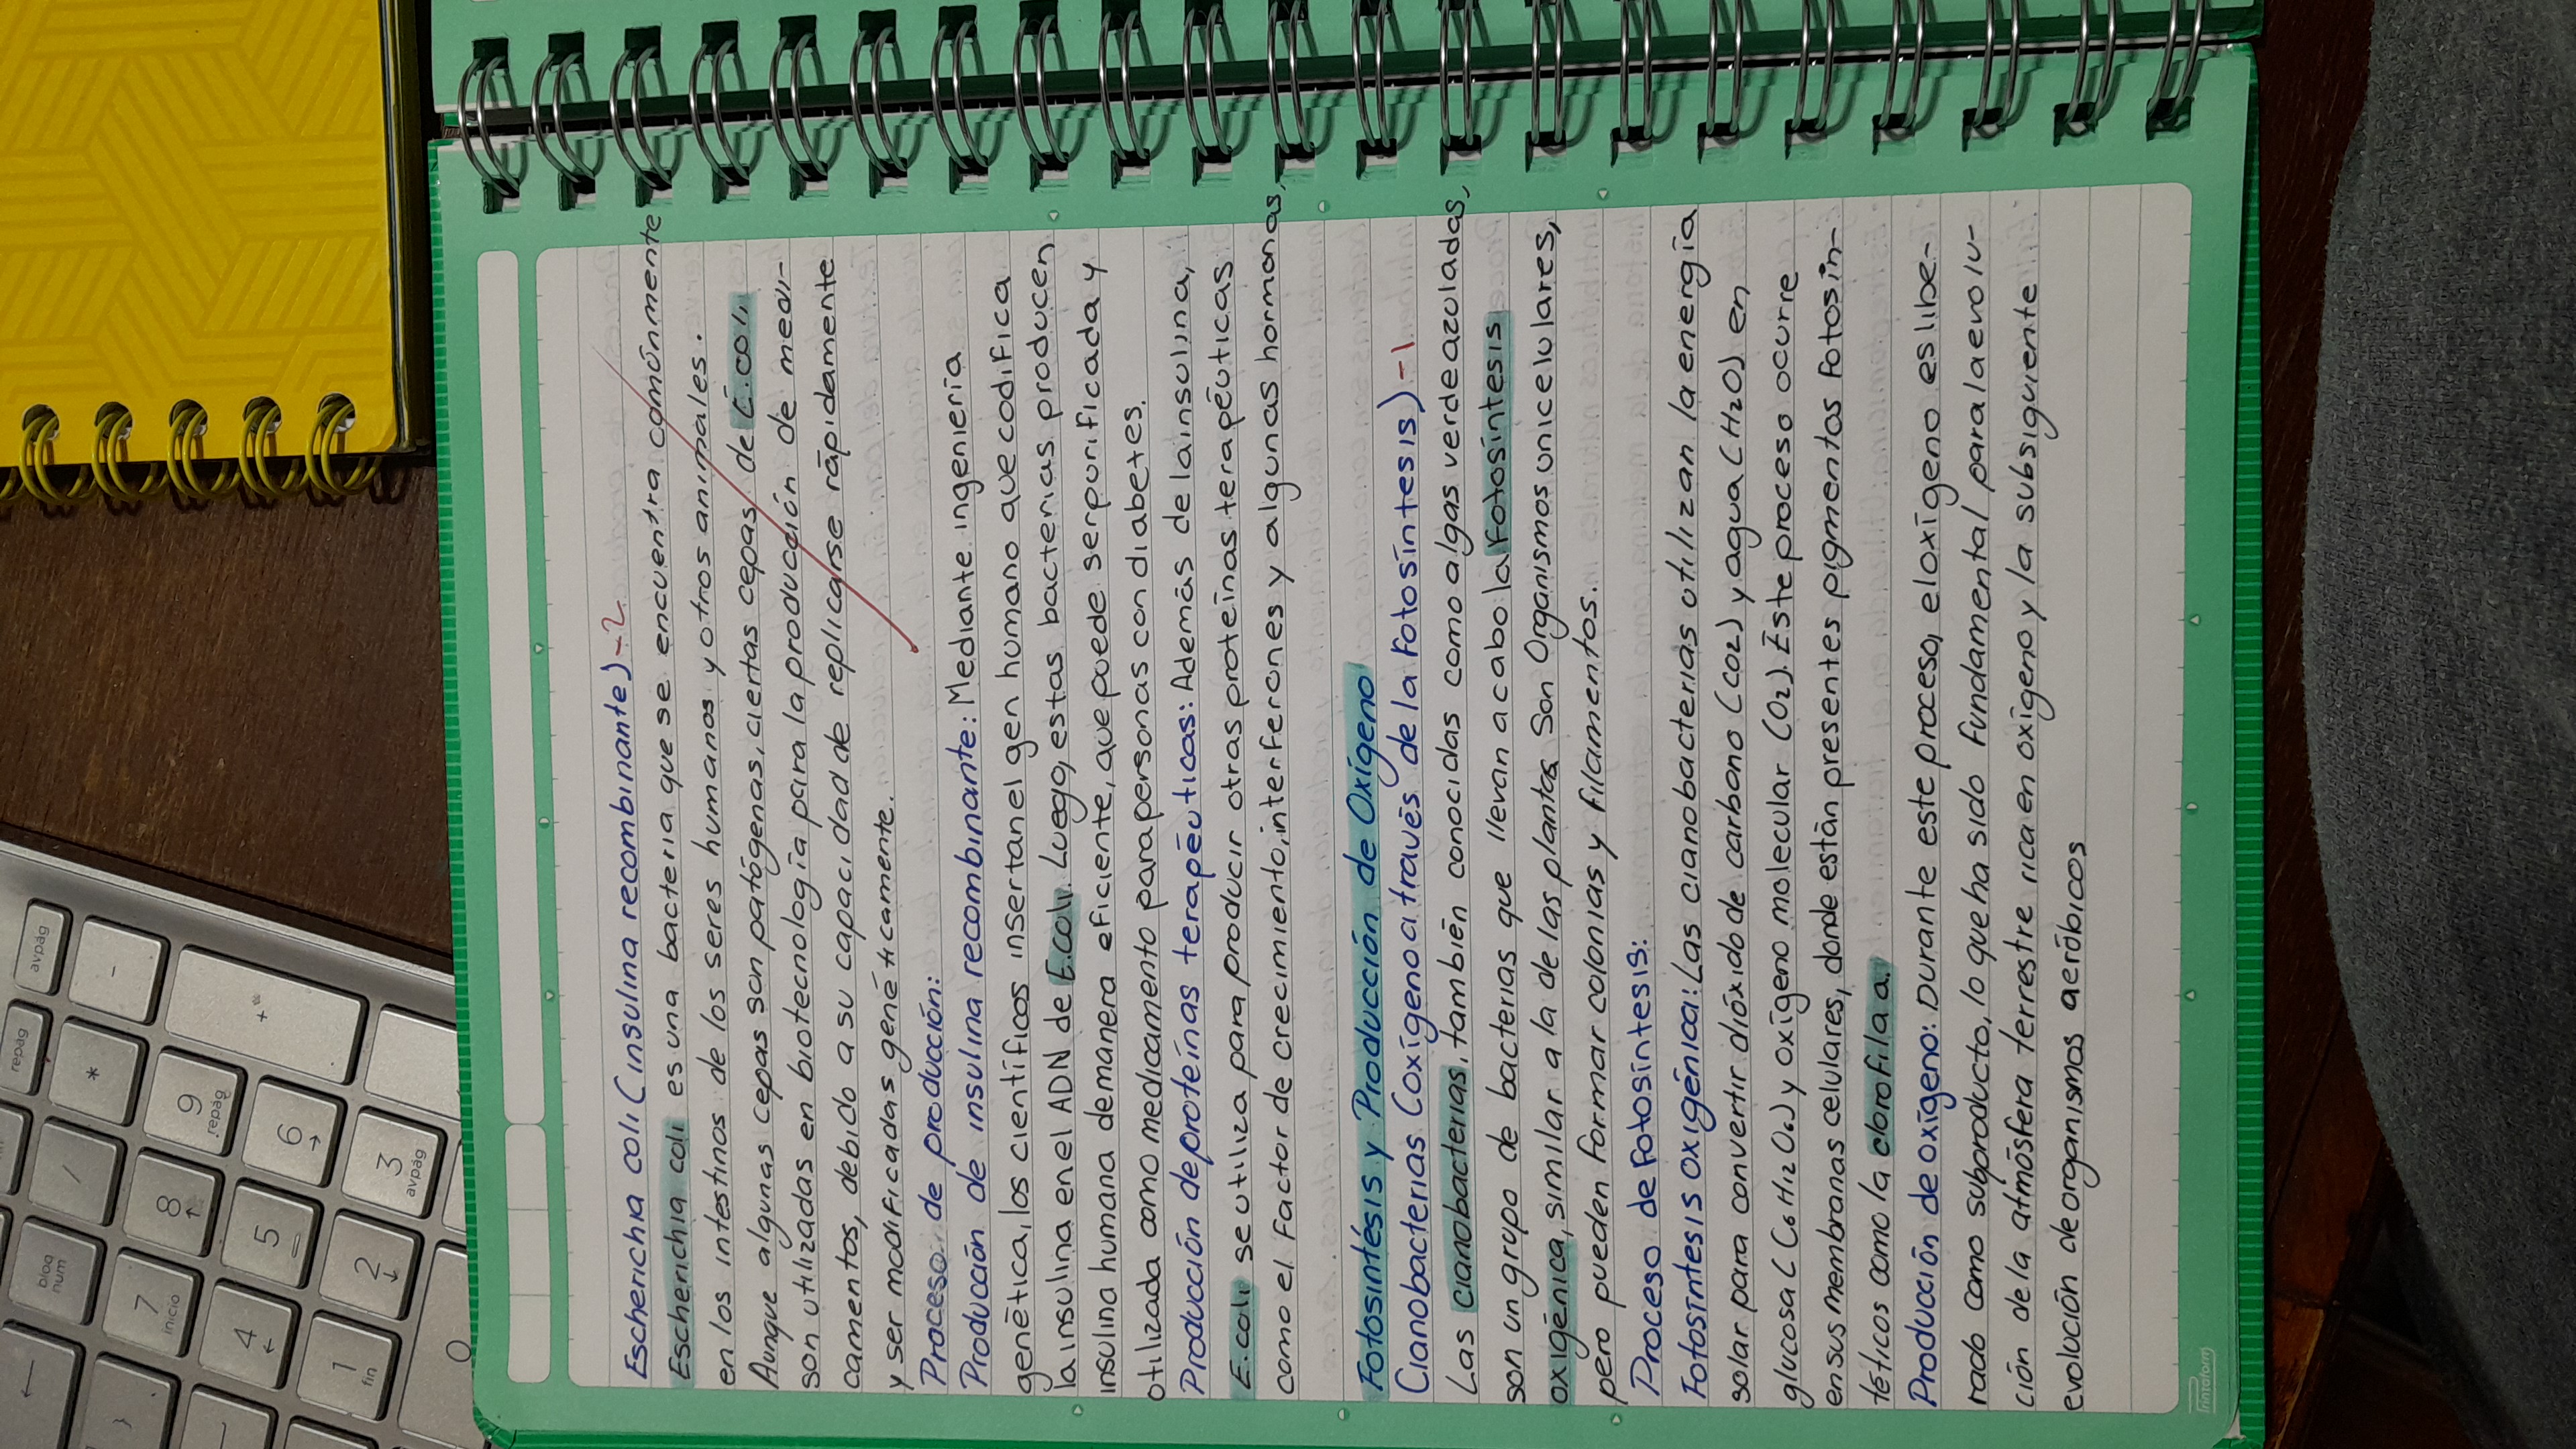 Escherichia coli (insulina recombinante) -2
Escherichia coli es una bacteria que se encuentra comúnmente
en los intestinos de los seres humanos y otros animales.
Aunque algunas cepas son patógenas, ciertas cepas de E. coli,
son utilizadas en biotecnología para la producción de medi-
camentos, debido a su capacidad de replicarse rápidamente
y ser modificadas genéticamente.
Proceso de producción:
Producción de insulina recombinante: Mediante ingeniería
genética, los científicos insertan el gen humano que codifica
la insulina en el ADN de E. coli. Luego, estas bacterias producen
insulina humana de manera eficiente, que puede ser purificada y
utilizada como medicamento para personas con diabetes.
Producción de proteínas terapéuticas: Además de la insulina,
E. coli se utiliza para producir otras proteínas terapéuticas
como el factor de crecimiento, interferones y algunas hormonas.
Fotosintésis y Producción de Oxígeno
Cianobacterias (oxígeno a través de la fotosíntesis) -1
Las cianobacterias, también conocidas como algas verdeazuladas,
son un grupo de bacterias que llevan a cabo la fotosíntesis
oxigénica, similar a la de las plantas. Son Organismos unicelulares,
pero pueden formar colonias y filamentos.
Proceso de fotosíntesis:
Fotosíntesis oxigénica: Las cianobacterias utilizan la energía
solar para convertir dióxido de carbono (CO2) y agua (H2O) en
glucosa (C6H12O6) y oxígeno molecular (O2). Este proceso ocurre
en sus membranas celulares, donde están presentes pigmentos fotosin-
téticos como la clorofila a.
Producción de oxígeno: Durante este proceso, el oxígeno es libe-
rado como subproducto, lo que ha sido fundamental para la evolu-
ción de la atmósfera terrestre rica en oxígeno y la subsiguiente
evolución de organismos aeróbicos
Printaform
avpág
repág
-
+
*
/
9
repág
8
7
inicio
bloq
num
6
5
4
3
avpág
2
1
fin
0